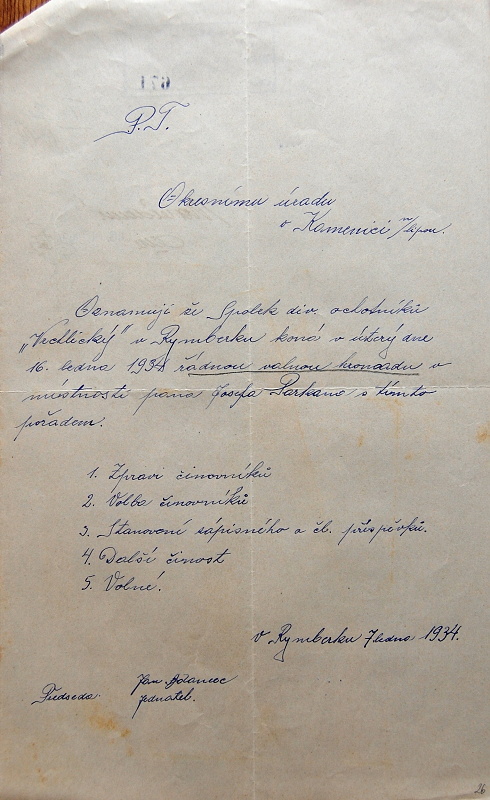 P.T.
Okresnímu úradu
v Kamenici n/lipou.
Oznamuji že Spolek div. ochotníků
„Vrchlický" v Rymberku koná v úterý dne
16. ledna 1934 řádnou valnou hromadu v
místnosti pana Josefa Parkana s tímto
pořadem.
1. Zpravi činovníků
2. Volba činovníků
3. Stanovení zápisného a čl. příspěvků.
4. Další činost
5. Volné.
v Rymberku 7 ledna 1934.
Jan Adamec
Předseda. jednatel.
26